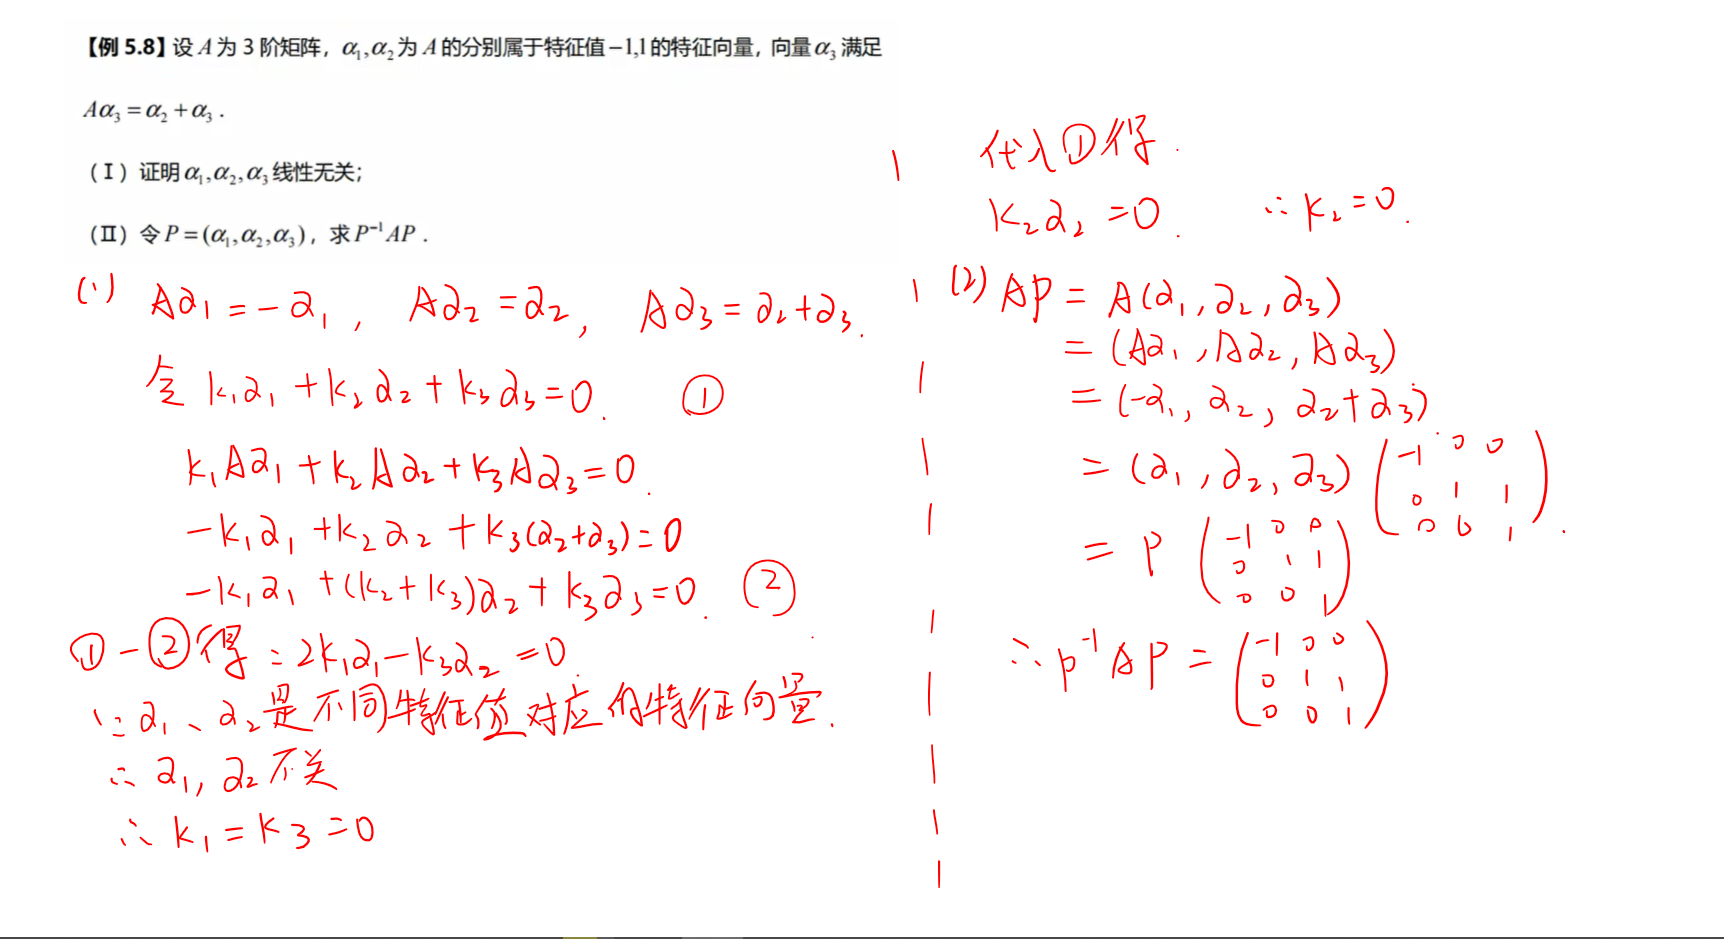 【例 5.8】设 A 为 3 阶矩阵，α₁,α₂为 A 的分别属于特征值−1,1的特征向量，向量α₃满足
Aα₃=α₂+α₃．
（Ⅰ）证明α₁,α₂,α₃线性无关；
（Ⅱ）令P=(α₁,α₂,α₃)，求P⁻¹AP．
(1) Aα₁=-α₁, Aα₂=α₂, Aα₃=α₂+α₃.
令 k₁α₁+k₂α₂+k₃α₃=0. ①
k₁Aα₁+k₂Aα₂+k₃Aα₃=0.
-k₁α₁+k₂α₂+k₃(α₂+α₃)=0
-k₁α₁+(k₂+k₃)α₂+k₃α₃=0. ②
①-②得: 2k₁α₁-k₃α₂=0.
∵α₁、α₂是不同特征值对应的特征向量.
∴α₁,α₂不关
∴k₁=k₃=0
代入①得.
k₂α₂=0. ∴k₂=0.
(2) AP=A(α₁,α₂,α₃)
=(Aα₁,Aα₂,Aα₃)
=(-α₁,α₂,α₂+α₃)
=(α₁,α₂,α₃)(-1 0 0
0 1 1
0 0 1).
=P(-1 0 0
0 1 1
0 0 1)
∴P⁻¹AP=(-1 0 0
0 1 1
0 0 1)